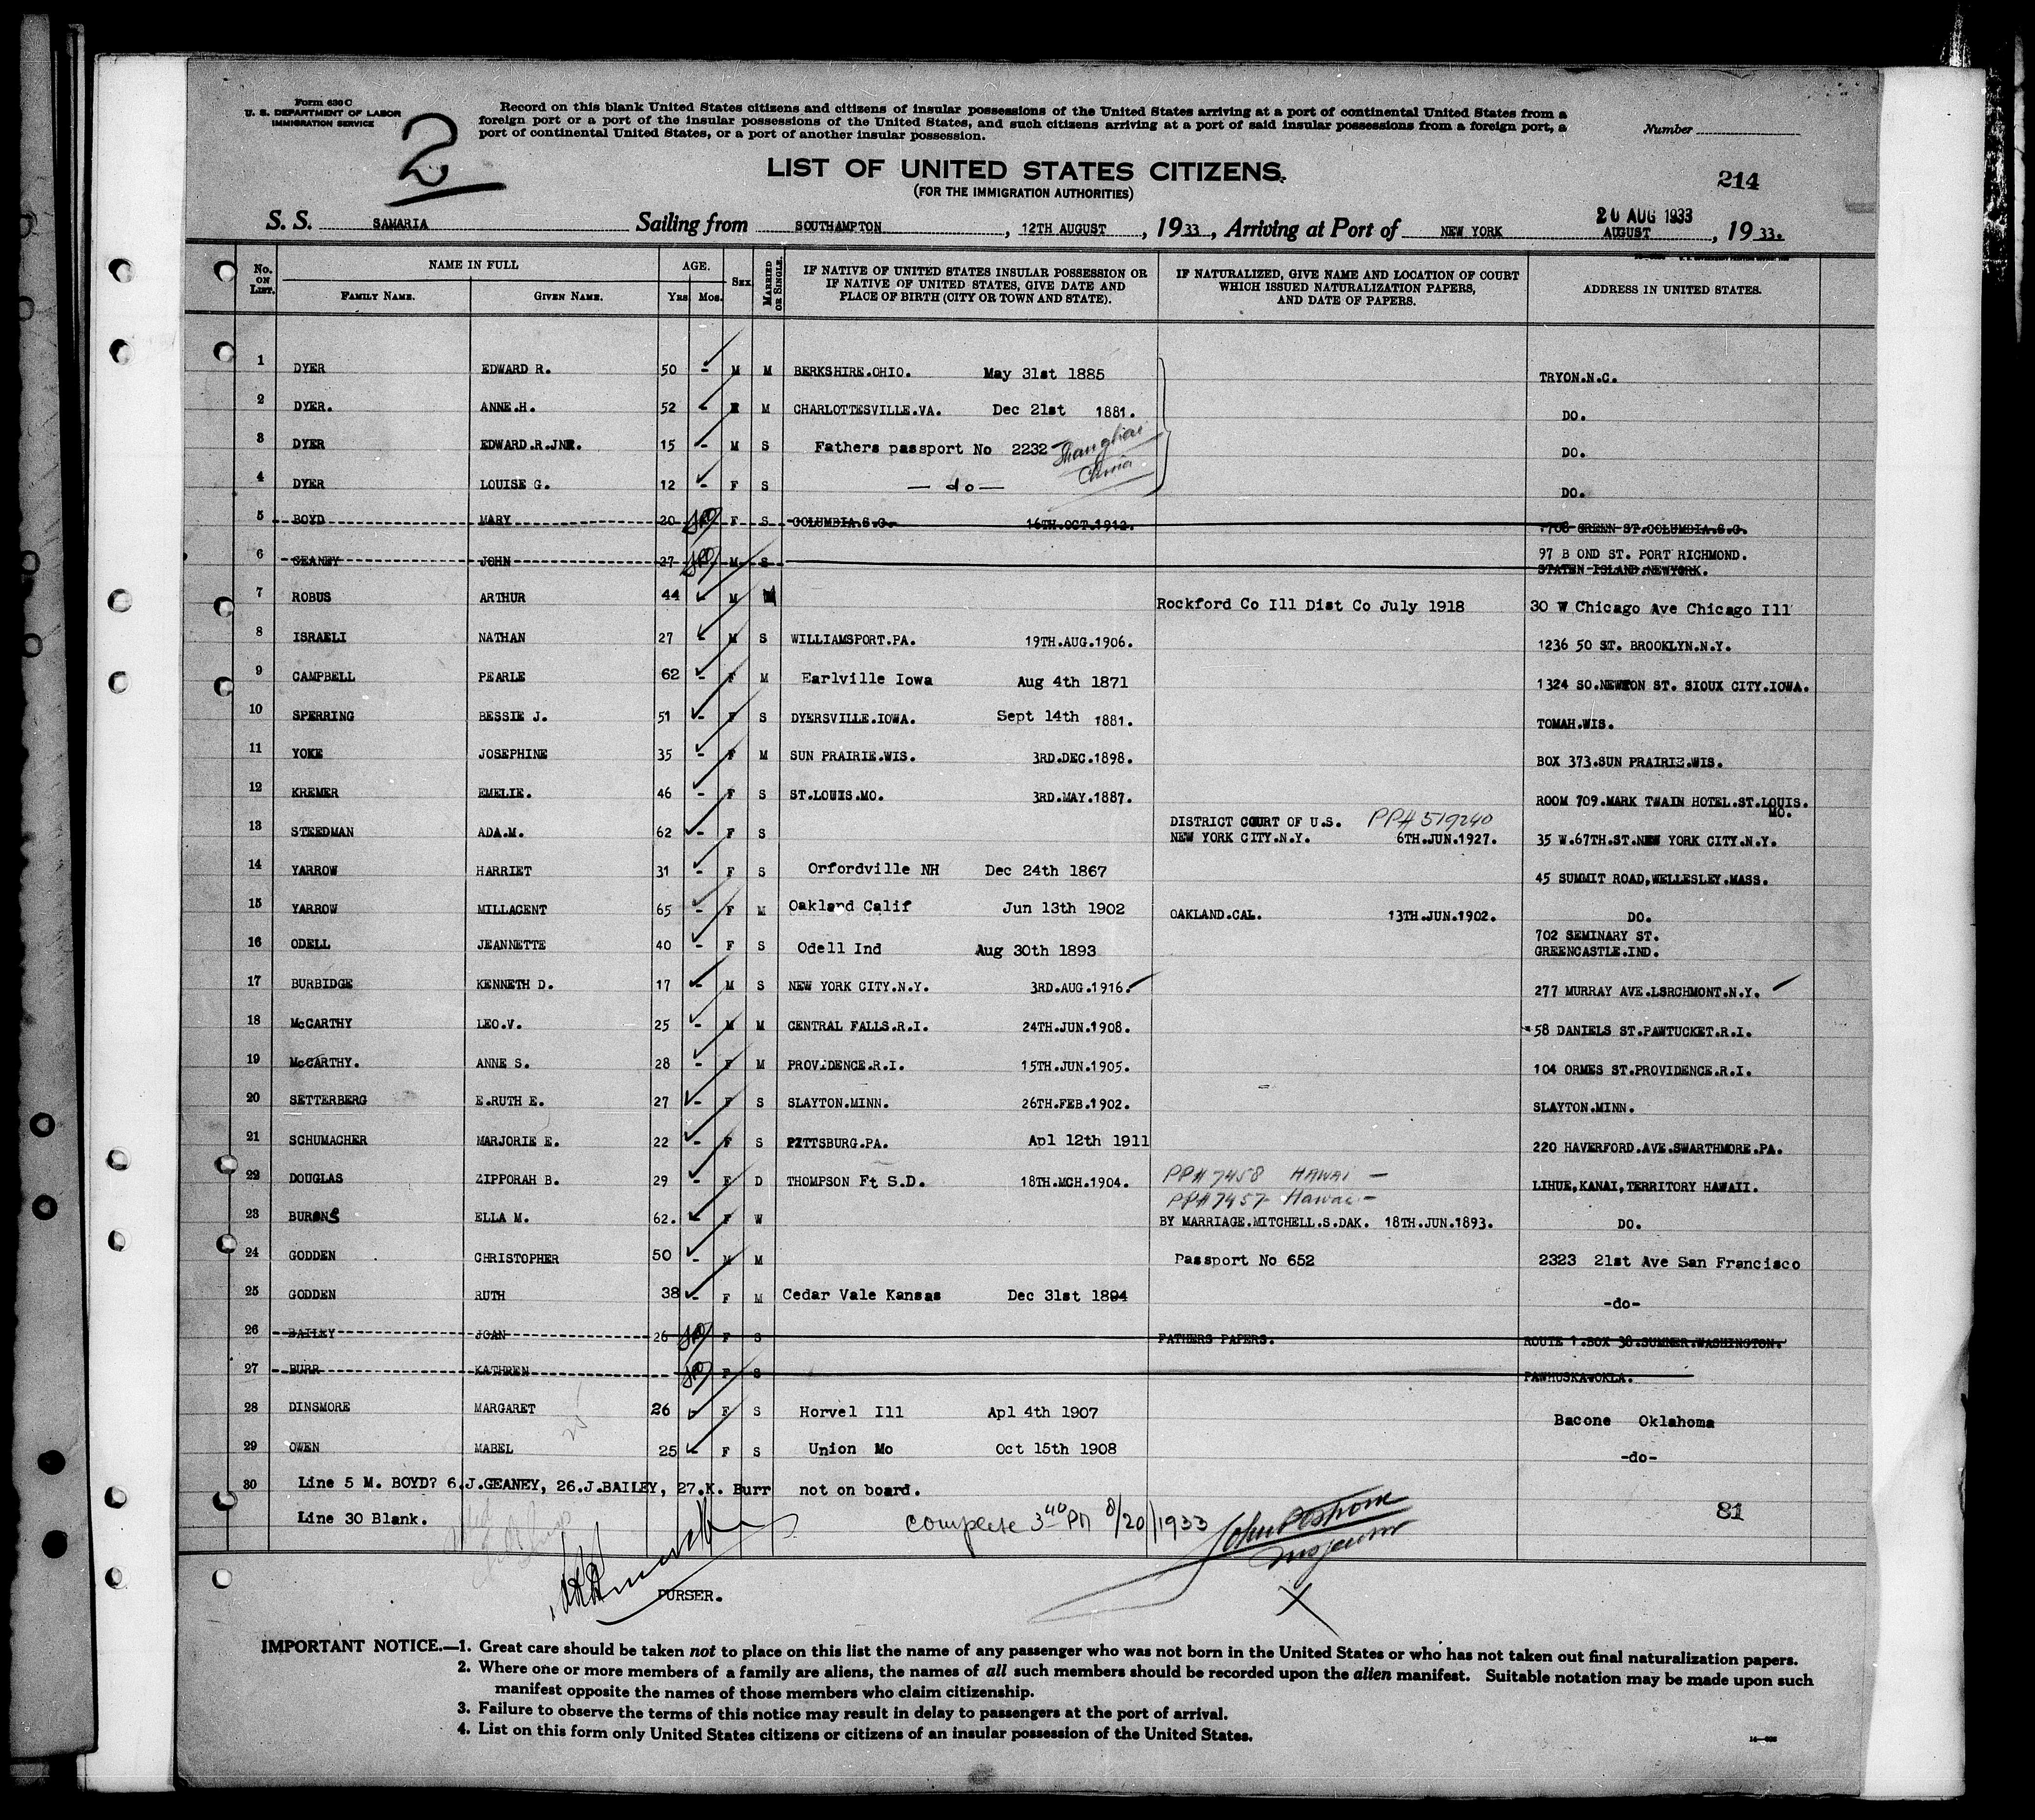 Form 630 C
U. S. DEPARTMENT OF LABOR
IMMIGRATION SERVICE
2
Record on this blank United States citizens and citizens of insular possessions of the United States arriving at a port of continental United States from a
foreign port or a port of the insular possessions of the United States, and such citizens arriving at a port of said insular possessions from a foreign port, a
port of continental United States, or a port of another insular possession.
Number
LIST OF UNITED STATES CITIZENS
(FOR THE IMMIGRATION AUTHORITIES)
214
S. S. SAMARIA Sailing from SOUTHAMPTON, 12TH AUGUST, 1933, Arriving at Port of NEW YORK 20 AUG 1933 AUGUST, 1933.
No. ON LIST. NAME IN FULL FAMILY NAME. GIVEN NAME. AGE. Yrs Mos. SEX MARRIED OR SINGLE. IF NATIVE OF UNITED STATES INSULAR POSSESSION OR IF NATIVE OF UNITED STATES, GIVE DATE AND PLACE OF BIRTH (CITY OR TOWN AND STATE). IF NATURALIZED, GIVE NAME AND LOCATION OF COURT WHICH ISSUED NATURALIZATION PAPERS, AND DATE OF PAPERS. ADDRESS IN UNITED STATES.
1 DYER EDWARD R. 50 - M M BERKSHIRE.OHIO. May 31st 1885 TRYON.N.C.
2 DYER. ANNE.H. 52 - F M CHARLOTTESVILLE.VA. Dec 21st 1881. DO.
3 DYER EDWARD.R.JNR. 15 - M S Fathers passport No 2232 Shanghai China DO.
4 DYER LOUISE G. 12 - F S — do — DO.
5 BOYD MARY 20 F S COLUMBIA.S.C. 16TH.OCT.1912. 708 GREEN ST.COLUMBIA.S.C.
6 GEANEY JOHN 27 M S 97 B OND ST. PORT RICHMOND. STATEN ISLAND.NEWYORK.
7 ROBUS ARTHUR 44 M M Rockford Co Ill Dist Co July 1918 30 W Chicago Ave Chicago Ill
8 ISRAELI NATHAN 27 - M S WILLIAMSPORT.PA. 19TH.AUG.1906. 1236 50 ST. BROOKLYN.N.Y.
9 CAMPBELL PEARLE 62 - F M Earlville Iowa Aug 4th 1871 1324 SO.NEWTON ST. SIOUX CITY.IOWA.
10 SPERRING BESSIE J. 51 - F S DYERSVILLE.IOWA. Sept 14th 1881. TOMAH.WIS.
11 YOKE JOSEPHINE 35 - F M SUN PRAIRIE.WIS. 3RD.DEC.1898. BOX 373.SUN PRAIRIE.WIS.
12 KREMER EMELIE. 46 - F S ST.LOUIS.MO. 3RD.MAY.1887. ROOM 709.MARK TWAIN HOTEL.ST.LOUIS. MO.
13 STEEDMAN ADA.M. 62 - F S DISTRICT COURT OF U.S. PP# 519240 NEW YORK CITY.N.Y. 6TH.JUN.1927. 35 W.67TH.ST.NEW YORK CITY.N.Y.
14 YARROW HARRIET 31 - F S Orfordville NH Dec 24th 1867 45 SUMMIT ROAD,WELLESLEY.MASS.
15 YARROW MILLACENT 65 - F M Oakland Calif Jun 13th 1902 OAKLAND.CAL. 13TH.JUN.1902. DO.
16 ODELL JEANNETTE 40 - F S Odell Ind Aug 30th 1893 702 SEMINARY ST. GREENCASTLE.IND.
17 BURBIDGE KENNETH D. 17 - M S NEW YORK CITY.N.Y. 3RD.AUG.1916. 277 MURRAY AVE.LSRCHMONT.N.Y.
18 McCARTHY LEO.V. 25 - M M CENTRAL FALLS.R.I. 24TH.JUN.1908. 58 DANIELS ST.PAWTUCKET.R.I.
19 McCARTHY. ANNE S. 28 - F M PROVIDENCE.R.I. 15TH.JUN.1905. 104 ORMES ST.PROVIDENCE.R.I.
20 SETTERBERG E.RUTH E. 27 - F S SLAYTON.MINN. 26TH.FEB.1902. SLAYTON.MINN.
21 SCHUMACHER MARJORIE E. 22 - F S PITTSBURG.PA. Apl 12th 1911 220 HAVERFORD.AVE.SWARTHMORE.PA.
22 DOUGLAS ZIPPORAH B. 29 - F D THOMPSON Ft S.D. 18TH.MCH.1904. PP# 7458 HAWAI — LIHUE,KANAI,TERRITORY HAWAII.
PP# 7457 Hawai —
23 BURNS ELLA M. 62. F W BY MARRIAGE.MITCHELL.S.DAK. 18TH.JUN.1893. DO.
24 GODDEN CHRISTOPHER 50 - M M Passport No 652 2323 21st Ave San Francisco
25 GODDEN RUTH 38 - F M Cedar Vale Kansas Dec 31st 1894 -do-
26 BAILEY JOAN 26 F S FATHERS PAPERS. ROUTE 1.BOX 38.SUMNER.WASHINGTON.
27 BURR KATHREN F S PAWHUSKA.OKLA.
28 DINSMORE MARGARET 26 F S Horvel Ill Apl 4th 1907 Bacone Oklahoma
29 OWEN MABEL 25 F S Union Mo Oct 15th 1908 -do-
30 Line 5 M. BOYD? 6.J.GEANEY, 26.J.BAILEY, 27.K. Burr not on board.
Line 30 Blank.
complete 3 40 PM 8/20/1933
81
PURSER.
X
IMPORTANT NOTICE.—1. Great care should be taken not to place on this list the name of any passenger who was not born in the United States or who has not taken out final naturalization papers.
2. Where one or more members of a family are aliens, the names of all such members should be recorded upon the alien manifest. Suitable notation may be made upon such
manifest opposite the names of those members who claim citizenship.
3. Failure to observe the terms of this notice may result in delay to passengers at the port of arrival.
4. List on this form only United States citizens or citizens of an insular possession of the United States.